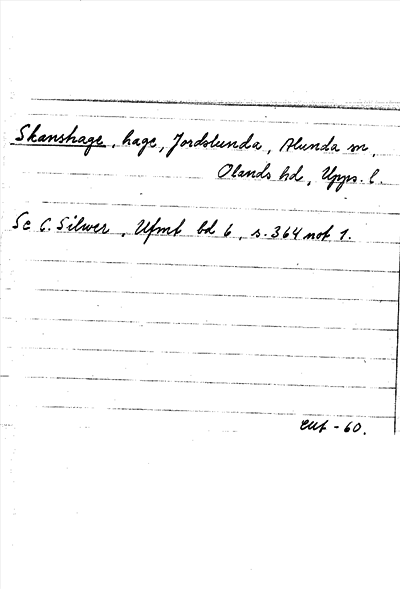 Skanshage, hage, Jordslunda, Alunda sn,
Olands hd, Upps. l.
Se C. Silwer, Ufmt bd 6, s. 364 not 1.
-60.